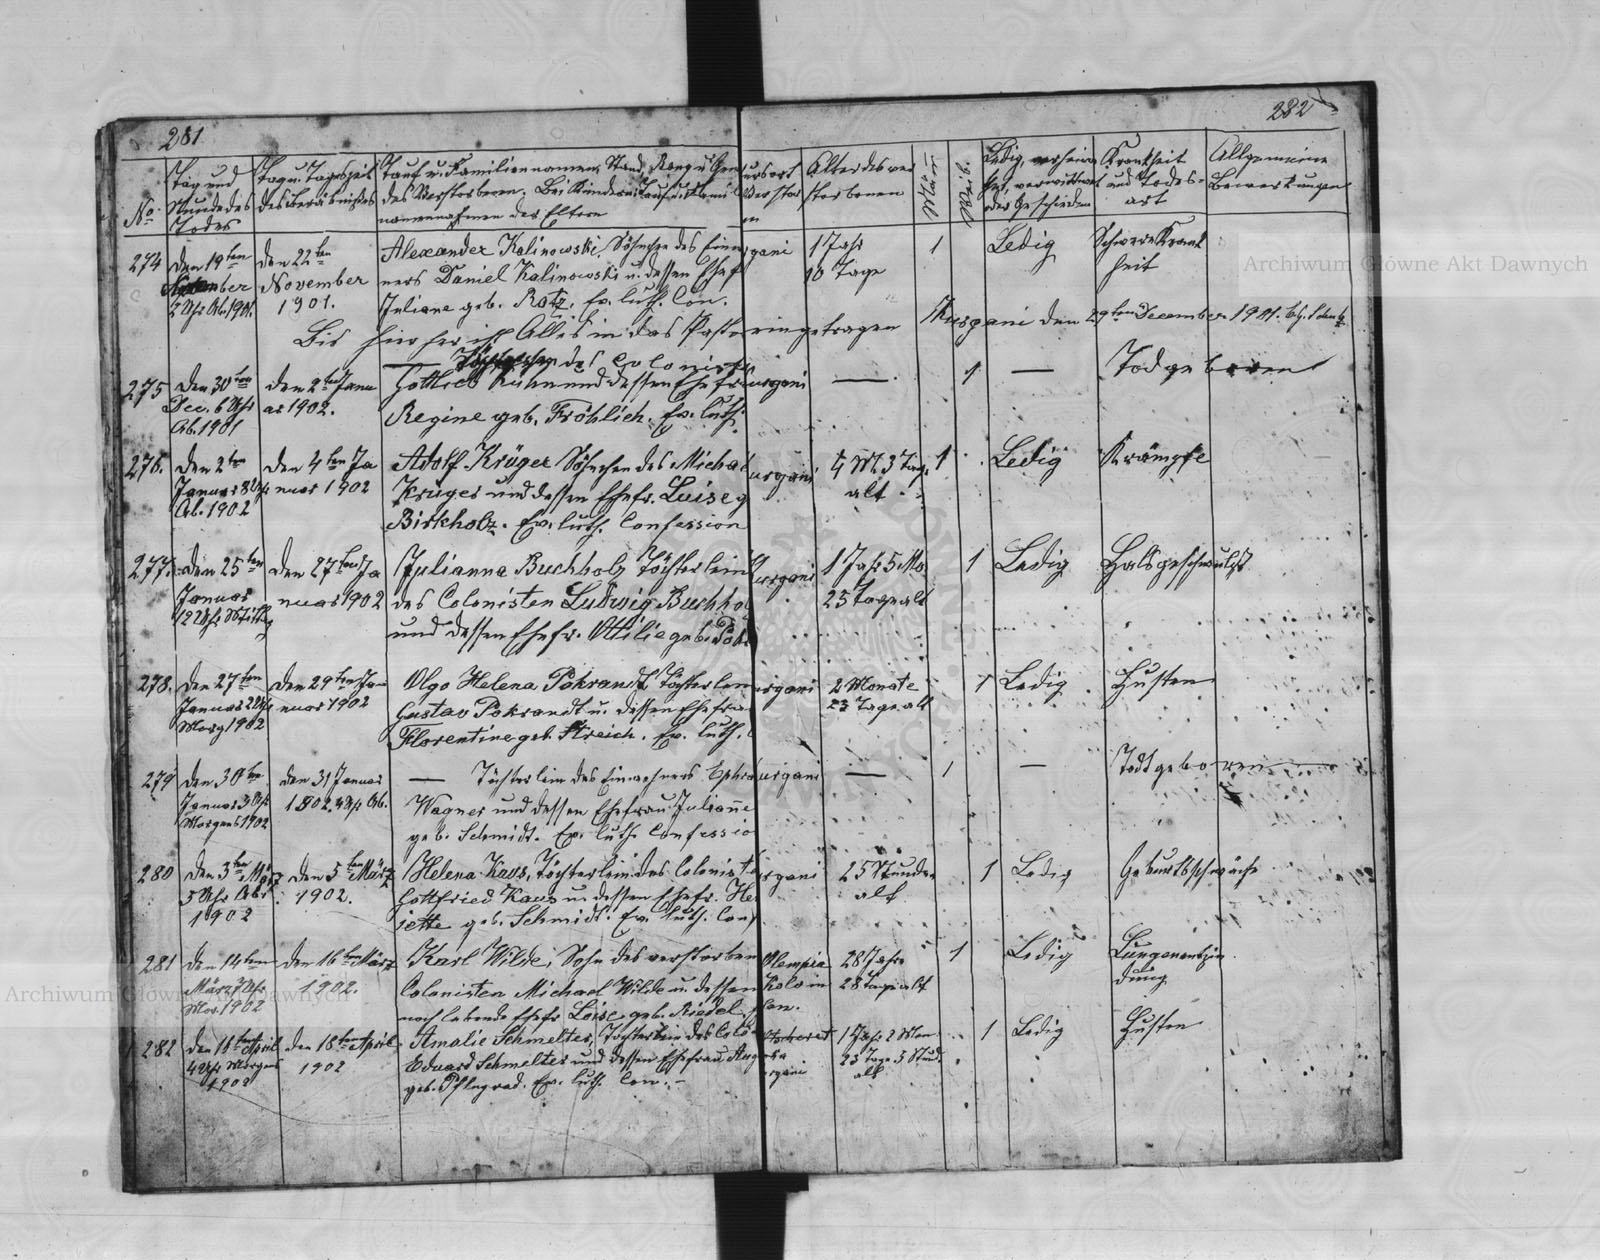 281
282
No.
Tag und Stunde des Todes
Tag u. Tageszeit des Beräbnißes
Tauf u. Familiennamen, Stand, Rang u. Gew
des Verstorbenen. Bei Kindern: Tauf u. Famili
nonnennahmen der Eltern
ursort
Verstor
en
Alter des ver
storbenen
Männl.
Weibl.
Ledig, verheira
thet, verwittwet
oder Geschieden
Krankheit
und Todes-
art
Allgemeine
Bemerkungen
274
den 19ten
November
2 Uhr Ab. 1901.
den 22ten
November
1901.
Alexander Kalinowski, Söhnchen des Einwo
ners Daniel Kalinowski u. dessen Ehef
Juliane geb. Ratz. Ev. luth. Con.
rgani
1 Jahr
10 Tage
1
Ledig
Schwere Krank
heit
Bis hierher ist Alles in das Pasto ringetragen
Kurgani den 29ten December 1901.
275
den 30ten
Dec. 6 Uhr
Ab. 1901
den 2ten Janu
ar 1902.
— Töchterchen des Colonisten
Gottlieb Kühn und dessen Ehefra
Regine geb. Fröhlich. Ev. luth.
urgani
—
1
—
Todgeboren
276.
den 2ten
Januar 8 Uhr
Ab. 1902
den 4ten Ja
nuar 1902
Adolf Krüger Söhnchen des Michae
Krüger und dessen Ehefr. Luise g
Birkholz. Ev. luth. Confession
urgani
4 M. 3 Tage
alt
1
Ledig
Krämpfe
277.
den 25ten
Januar
12 Uhr Mittag
den 27ten Ja
nuar 1902
Julianna Buchholz Töchterlein
des Colonisten Ludwig Buchhol
und dessen Ehefr. Ottilie geb. Pokr
urgani
1 Jahr 5 Mo
25 Tage alt
1
Ledig
Halsgeschwulst
278.
den 27ten
Januar 2 Uhr
Morg 1902
den 29ten Jan
nuar 1902
Olga Helena Pokrandt, Töchterlein
Gustav Pokrandt u. dessen Ehefra
Florentine geb. Streich. Ev. luth.
urgani
2 Monate
23 Tage alt
1
Ledig
Husten
279
den 30ten
Januar 3 Uhr
Morgens 1902
den 31 Januar
1902. 4 Uhr Ab.
— Töchterlein des Einwohners Ephra
Wagner und dessen Ehefrau Julianne
geb. Schmidt. Ev. luth. Confessio
urgani
—
1
—
Todtgeboren
280
den 3ten März
5 Uhr Abd
1902
den 5ten März
1902.
Helena Kaus, Töchterlein des Colonist
Gottfried Kaus u. dessen Ehefr. He
jette geb. Schmidt. Ev. luth. Conf
rgani
25 Stunden
alt
1
Ledig
Geburtsschwäche
281
den 14ten
März 7 Uhr
Mor. 1902
den 16ten März
1902.
Karl Wilde, Sohn des verstorben
Colonisten Michael Wilde u. dessen
noch lebende Ehefr. Loise geb. Riedel
Olempia
28 Jahre
28 Tage alt
1
Ledig
Lungenentzün
dung
282
den 16ten April
4 Uhr Morgens
1902
den 18ten April
1902
Amalie Schmelter, Töchterlein des Colo
Eduard Schmelter und dessen Ehefrau Aug
geb. Pflugrad. Ev. luth. Con.
rgani
1 Jahr 2 Mon
23 Tage 5 Stund
alt
1
Ledig
Husten
Archiwum Główne Akt Dawnych
Archiwum Główne Akt Dawnych